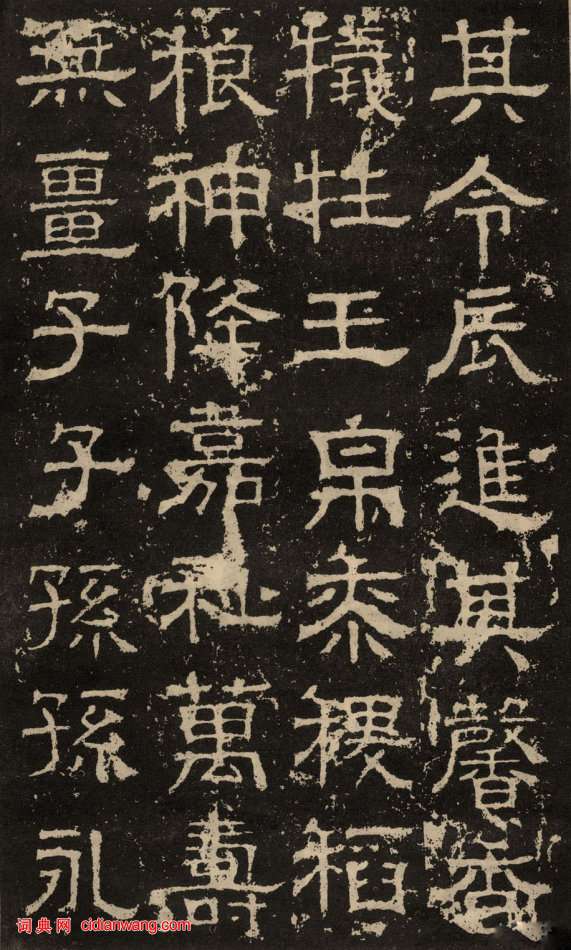 其令辰進其馨香
犧牲王帛黍稷稻
粮神降嘉祉萬壽
無畺子子孫孫永
词典网 cidianwang.com